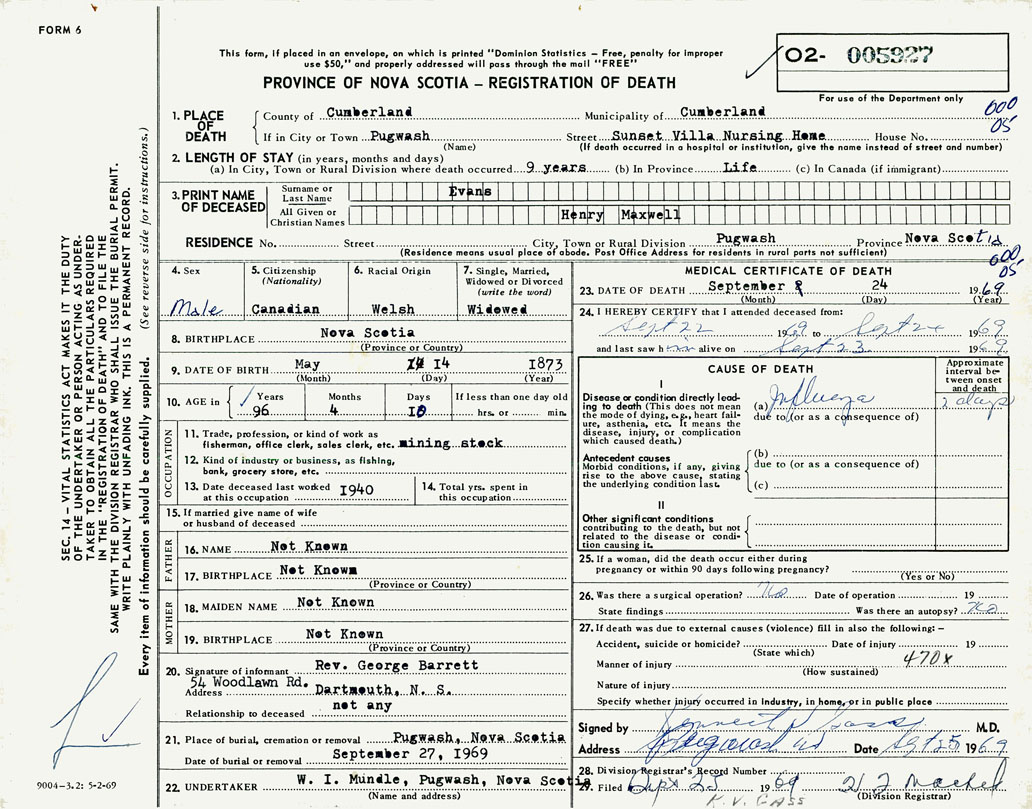 FORM 6
This form, if placed in an envelope, on which is printed "Dominion Statistics – Free, penalty for improper
use $50," and properly addressed will pass through the mail "FREE"
O2- 005927
For use of the Department only
PROVINCE OF NOVA SCOTIA – REGISTRATION OF DEATH
1. PLACE OF DEATH
County of Cumberland Municipality of Cumberland
000
05
If in City or Town Pugwash Street Sunset Villa Nursing Home House No.
(Name) (If death occurred in a hospital or institution, give the name instead of street and number)
2. LENGTH OF STAY (in years, months and days)
(a) In City, Town or Rural Division where death occurred 9 years (b) In Province Life (c) In Canada (if immigrant)
3. PRINT NAME OF DECEASED
Surname or Last Name Evans
All Given or Christian Names Henry Maxwell
RESIDENCE No. Street City, Town or Rural Division Pugwash Province Nova Scotia
(Residence means usual place of abode. Post Office Address for residents in rural parts not sufficient)
000
05
4. Sex
Male
5. Citizenship
(Nationality)
Canadian
6. Racial Origin
Welsh
7. Single, Married,
Widowed or Divorced
(write the word)
Widowed
8. BIRTHPLACE Nova Scotia
(Province or Country)
9. DATE OF BIRTH May 14 1873
(Month) (Day) (Year)
10. AGE in
Years 96
Months 4
Days 10
If less than one day old
hrs. or min.
OCCUPATION
11. Trade, profession, or kind of work as
fisherman, office clerk, sales clerk, etc. mining stock
12. Kind of industry or business, as fishing,
bank, grocery store, etc.
13. Date deceased last worked
at this occupation 1940
14. Total yrs. spent in
this occupation
15. If married give name of wife
or husband of deceased
FATHER
16. NAME Not Known
17. BIRTHPLACE Not Known
(Province or Country)
MOTHER
18. MAIDEN NAME Not Known
19. BIRTHPLACE Not Known
(Province or Country)
20. Signature of informant Rev. George Barrett
Address 54 Woodlawn Rd. Dartmouth, N. S.
Relationship to deceased not any
21. Place of burial, cremation or removal Pugwash, Nova Scotia
Date of burial or removal September 27, 1969
22. UNDERTAKER W. I. Mundle, Pugwash, Nova Scotia
(Name and address)
MEDICAL CERTIFICATE OF DEATH
23. DATE OF DEATH September 24 1969
(Month) (Day) (Year)
24. I HEREBY CERTIFY that I attended deceased from:
Sept 22 1969 to Sept 24 1969
and last saw him alive on Sept 23 1969
CAUSE OF DEATH
Approximate
interval be-
tween onset
and death
I
Disease or condition directly lead-
ing to death (This does not mean
the mode of dying, e.g., heart fail-
ure, asthenia, etc. It means the
disease, injury, or complication
which caused death.)
(a) Influenza 2 days
due to (or as a consequence of)
Antecedent causes
Morbid conditions, if any, giving
rise to the above cause, stating
the underlying condition last.
(b)
due to (or as a consequence of)
(c)
II
Other significant conditions
contributing to the death, but not
related to the disease or condi-
tion causing it.
25. If a woman, did the death occur either during
pregnancy or within 90 days following pregnancy?
(Yes or No)
26. Was there a surgical operation? No Date of operation 19
State findings Was there an autopsy? No
27. If death was due to external causes (violence) fill in also the following: –
Accident, suicide or homicide? Date of injury 19
(State which)
Manner of injury 470x
(How sustained)
Nature of injury
Specify whether injury occurred in industry, in home, or in public place
Signed by M.D.
Address Pugwash NS Date Sept 25 1969
28. Division Registrar's Record Number
29. Filed Sept 25 1969
K. V. CASS
(Division Registrar)
SEC. 14 – VITAL STATISTICS ACT MAKES IT THE DUTY
OF THE UNDERTAKER OR PERSON ACTING AS UNDER-
TAKER TO OBTAIN ALL THE PARTICULARS REQUIRED
IN THE "REGISTRATION OF DEATH" AND TO FILE THE
SAME WITH THE DIVISION REGISTRAR WHO SHALL ISSUE THE BURIAL PERMIT.
WRITE PLAINLY WITH UNFADING INK. THIS IS A PERMANENT RECORD.
Every item of information should be carefully supplied. (See reverse side for instructions.)
9004-3.2: 5-2-69